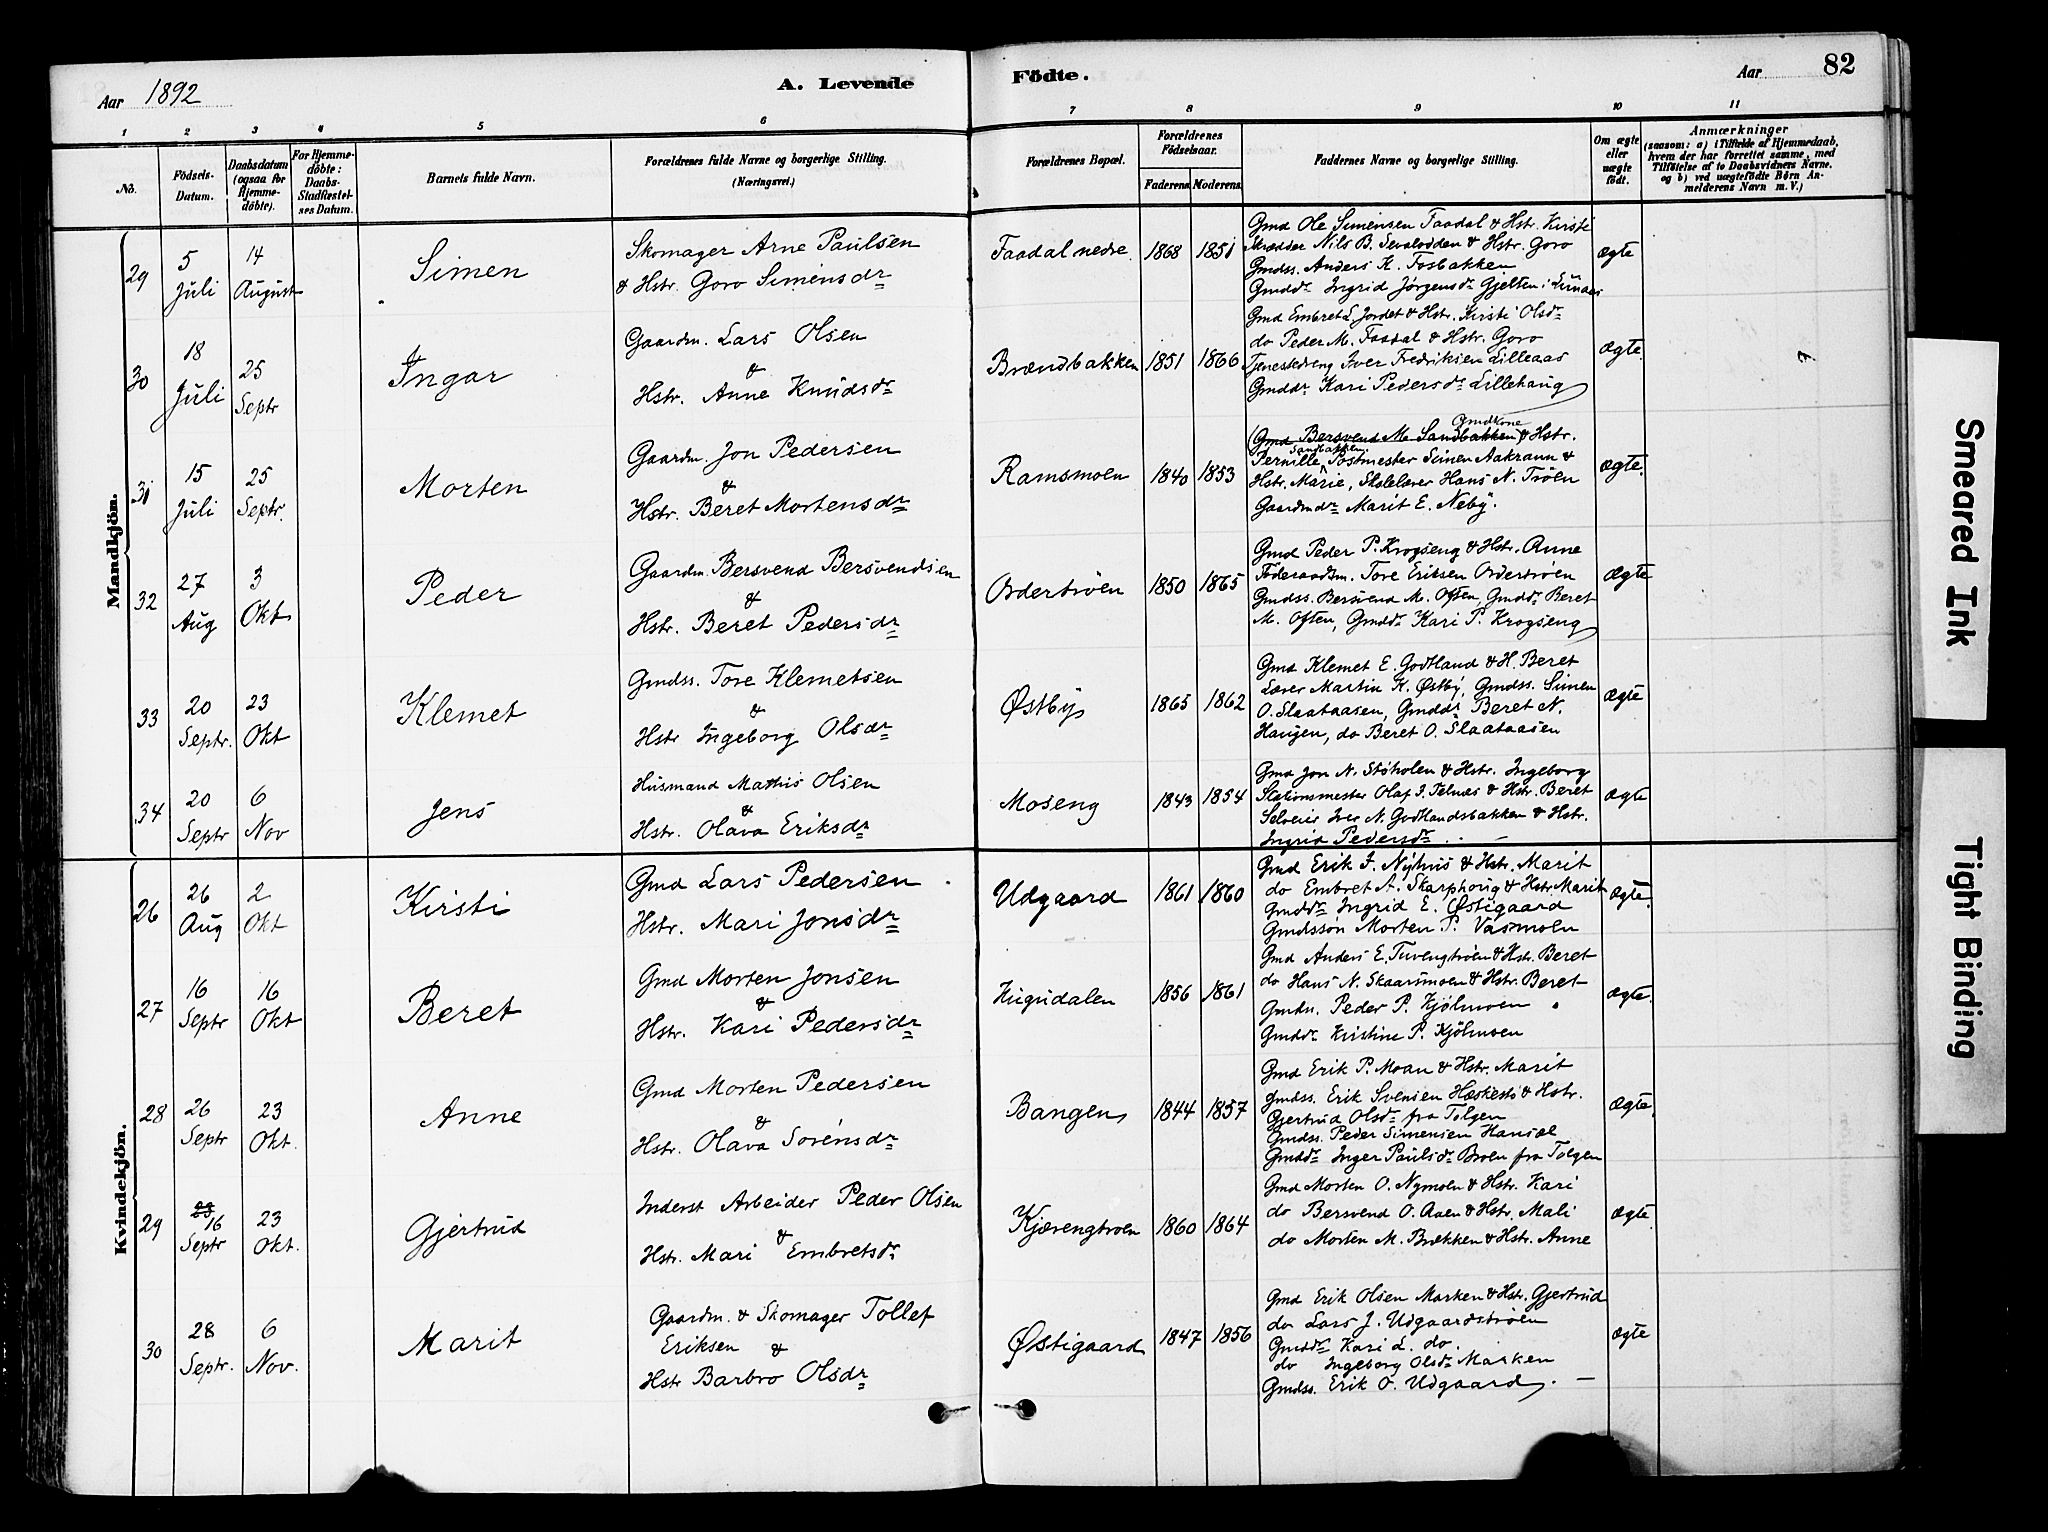 Aar 1892
A. Levende
Födte.
Aar 82
1 2 3 4 5 6 7 8 9 10 11
No.
Födsels-Datum.
Daabsdatum (ogsaa for Hjemme-döbte).
For Hjemme-döbte: Daabs-Stadfæstel-ses Datum.
Barnets fulde Navn.
Forældrenes fulde Navne og borgerlige Stilling.
(Næringsvei.)
Forældrenes Bopæl.
Forældrenes Födselsaar.
Faderens. Moderens.
Faddernes Navne og borgerlige Stilling.
Om ægte eller uægte födt.
Anmærkninger
(saasom: a) i Tilfælde af Hjemmedaab,
hvem der har forrettet samme, med
Tilföielse af to Daabsvidners Navne.
og b) ved uægtefödte Börn An-
melderens Navn m. V.)
Mandkjön.
29
5 Juli
14 August
Simen
Skomager Arne Paulsen
& Hstr. Goro Simensdr
Faadal nedre
1868 1851
Gmd Ole Simensen Faadal & Hstr. Kirsti
Skrædder Nils B. Sevalodden & Hstr. Goro
Gmdss. Anders K. Fosbakken
Gmddr Ingrid Jørgensdr Gjelten i Lilleelvedalen
ægte
30
18 Juli
25 Septr
Ingar
Gaardm. Lars Olsen
&
Hstr. Anne Knudsdr
Brændbakken
1851 1866
Gmd Embret L. Jordet & Hstr. Kirsti Olsdr
do Peder M. Faadal & Hstr. Goro
Tjenestedreng Iver Fredriksen Lilleaas
Gmddr Kari Pedersdr Lillehaug
Ægte
31
15 Juli
25 Septr.
Morten
Gaardm. Jon Pedersen
&
Hstr. Beret Mortensdr
Ramsmoen
1840 1853
Gmdkone
(Gmd Bersvend M. Sandbakken) & Hstr.
Sandbakken
Pernille, Postmester Simen Aakrann &
Hstr. Marie, Skolelærer Hans N. Trøen
Gaardmdr Marit E. Neby.
Ægte.
32
27 Aug
3 Okt
Peder
Gaardm. Bersvend Bersvendsen
&
Hstr. Beret Pedersdr
Orderstrøen
1850 1865
Gmd Peder P. Krogseng & Hstr. Anne
Föderaadsm. Tore Eriksen Orderstrøen
Gmdss. Bersvend M. Often, Gmddr Beret
M. Often, Gmddr Kari P. Krogseng
Ægte
33
20 Septr.
23 Okt
Klemet
Gmdss. Tore Klemetsen
&
Hstr Ingeborg Olsdr
Østby
1865 1862
Gmd Klemet E. Godtland & H. Beret
Lærer Martin K. Østby, Gmdss. Simen
O. Slaataasen, Gmddr Beret N.
Haugen, do Beret O. Slaataasen
Ægte
34
20 Septr
6 Nov
Jens
Husmand Mathis Olsen
&
Hstr. Olava Eriksdr
Moseng
1843 1854
Gmd Jon N. Støholen & Hstr. Ingeborg
Stationsmester Olaf J. Telnæs & Hstr. Beret
Selveier Iver N. Godtlandsbakken & Hstr.
Ingrid Pedersdr
Ægte
Kvindekjön.
26
26 Aug
2 Okt
Kirsti
Gmd Lars Pedersen
Hstr. Mari Jonsdr
Udgaard
1861 1860
Gmd Erik J. Nyhus & Hstr. Marit
do Embret A. Skarphoug & Hstr. Marit
Gmddr Ingrid E. Østigaard
Gmdssøn Morten P. Vasmoen
Ægte.
27
16 Septr
16 Okt
Beret
Gmd Morten Jonsen
&
Hstr. Kari Pedersdr
Hugudalen
1856 1861
Gmd Anders E. Turengtrøen & Hstr. Beret
do Hans N. Skaarsmoen & Hstr. Beret
Gmdss. Peder P. Kjølmoen
Gmddr Kristine P. Kjølmoen
Ægte.
28
26 Septr
23 Okt.
Anne
Gmd Morten Pedersen
&
Hstr. Olava Sorensdr
Bangen
1844 1857
Gmd Erik P. Moan & Hstr. Marit
Gmdss. Erik Svensen & Hstr.
Gjertrud Olsdr fra Tolgen
Gmdss. Peder Simensen Hansæl
Gmddr Inger Paulsdr Broen fra Tolgen
Ægte.
29
23 16 Septr
23 Okt.
Gjertrud
Inderst Arbeider Peder Olsen
&
Hstr. Mari Embretsdr
Kjærengtroen
1860 1864
Gmd Morten O. Nymoen & Hstr. Kari
do Bersvend O. Aaen & Hstr. Mali
do Morten M. Brækken & Hstr. Anne
Ægte.
30
28 Septr.
6 Nov.
Marit
Gaardm. & Skomager Tollef
Eriksen &
Hstr Barbro Olsdr
Østigaard
1847 1856
Gmd Erik Olsen Marken & Hstr. Gjertrud
do Lars J. Udgaardstrøen
Gmddr Kari L. do.
do Ingeborg Olsdr Marken
Gmdss. Erik O. Udgaard.
Ægte
Smeared Ink
Tight Binding